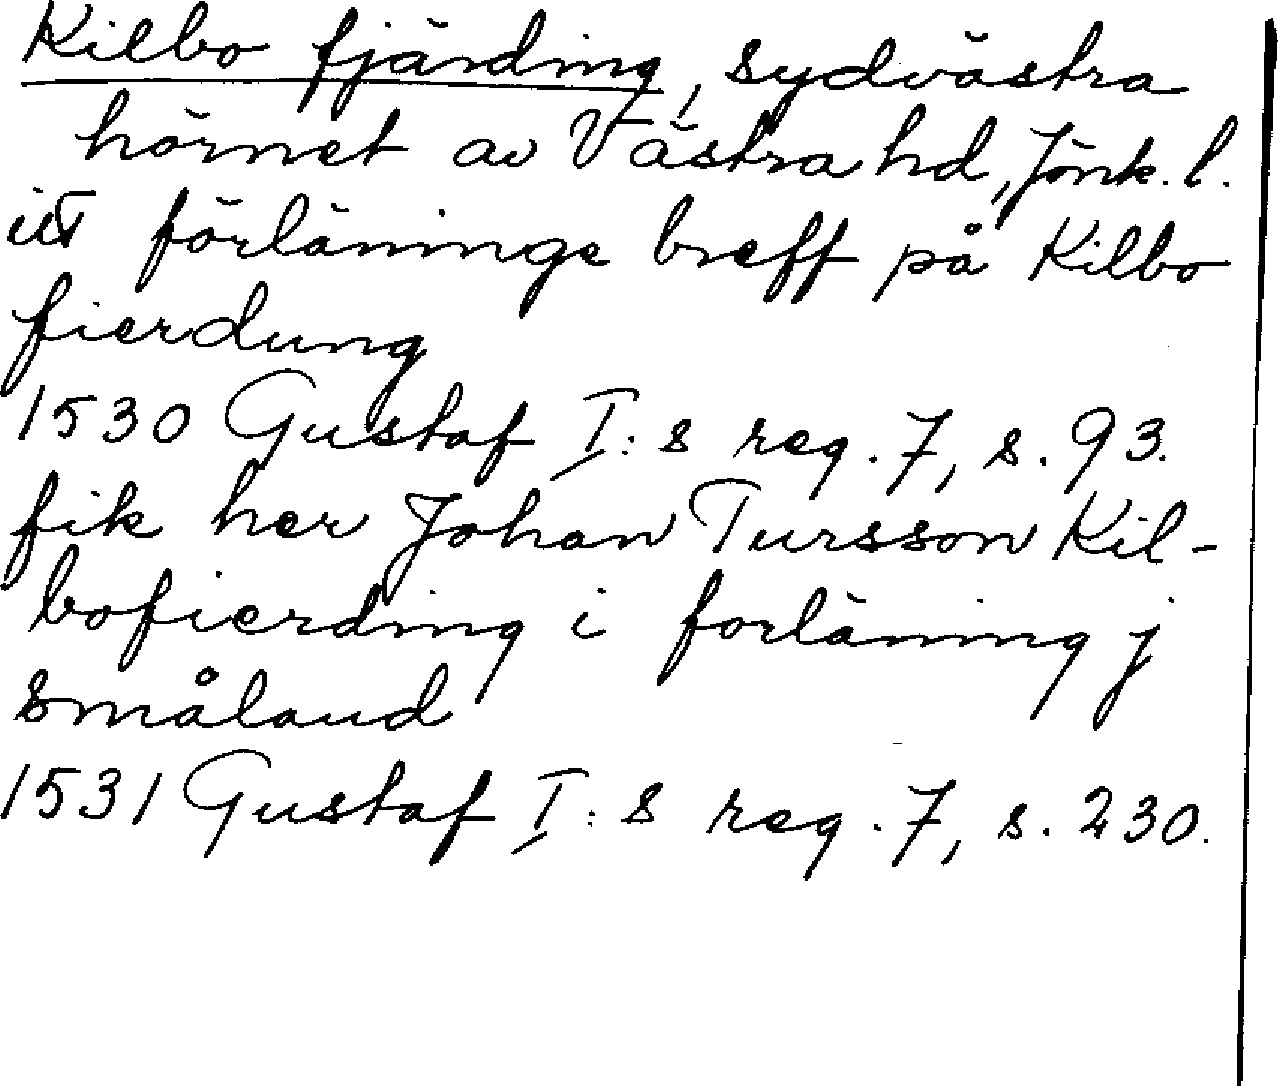 Kilbo fjärding, sydvästra
hörnet av Västra hd, Jönk. l.
förläninge breff på Kilbo
fierdung
1530 Gustaf I:s reg. 7, s. 93.
fik her Johan Tursson Kil-
bofierding i forläning j
småland
1531 Gustaf I:s reg. 7, s. 230.